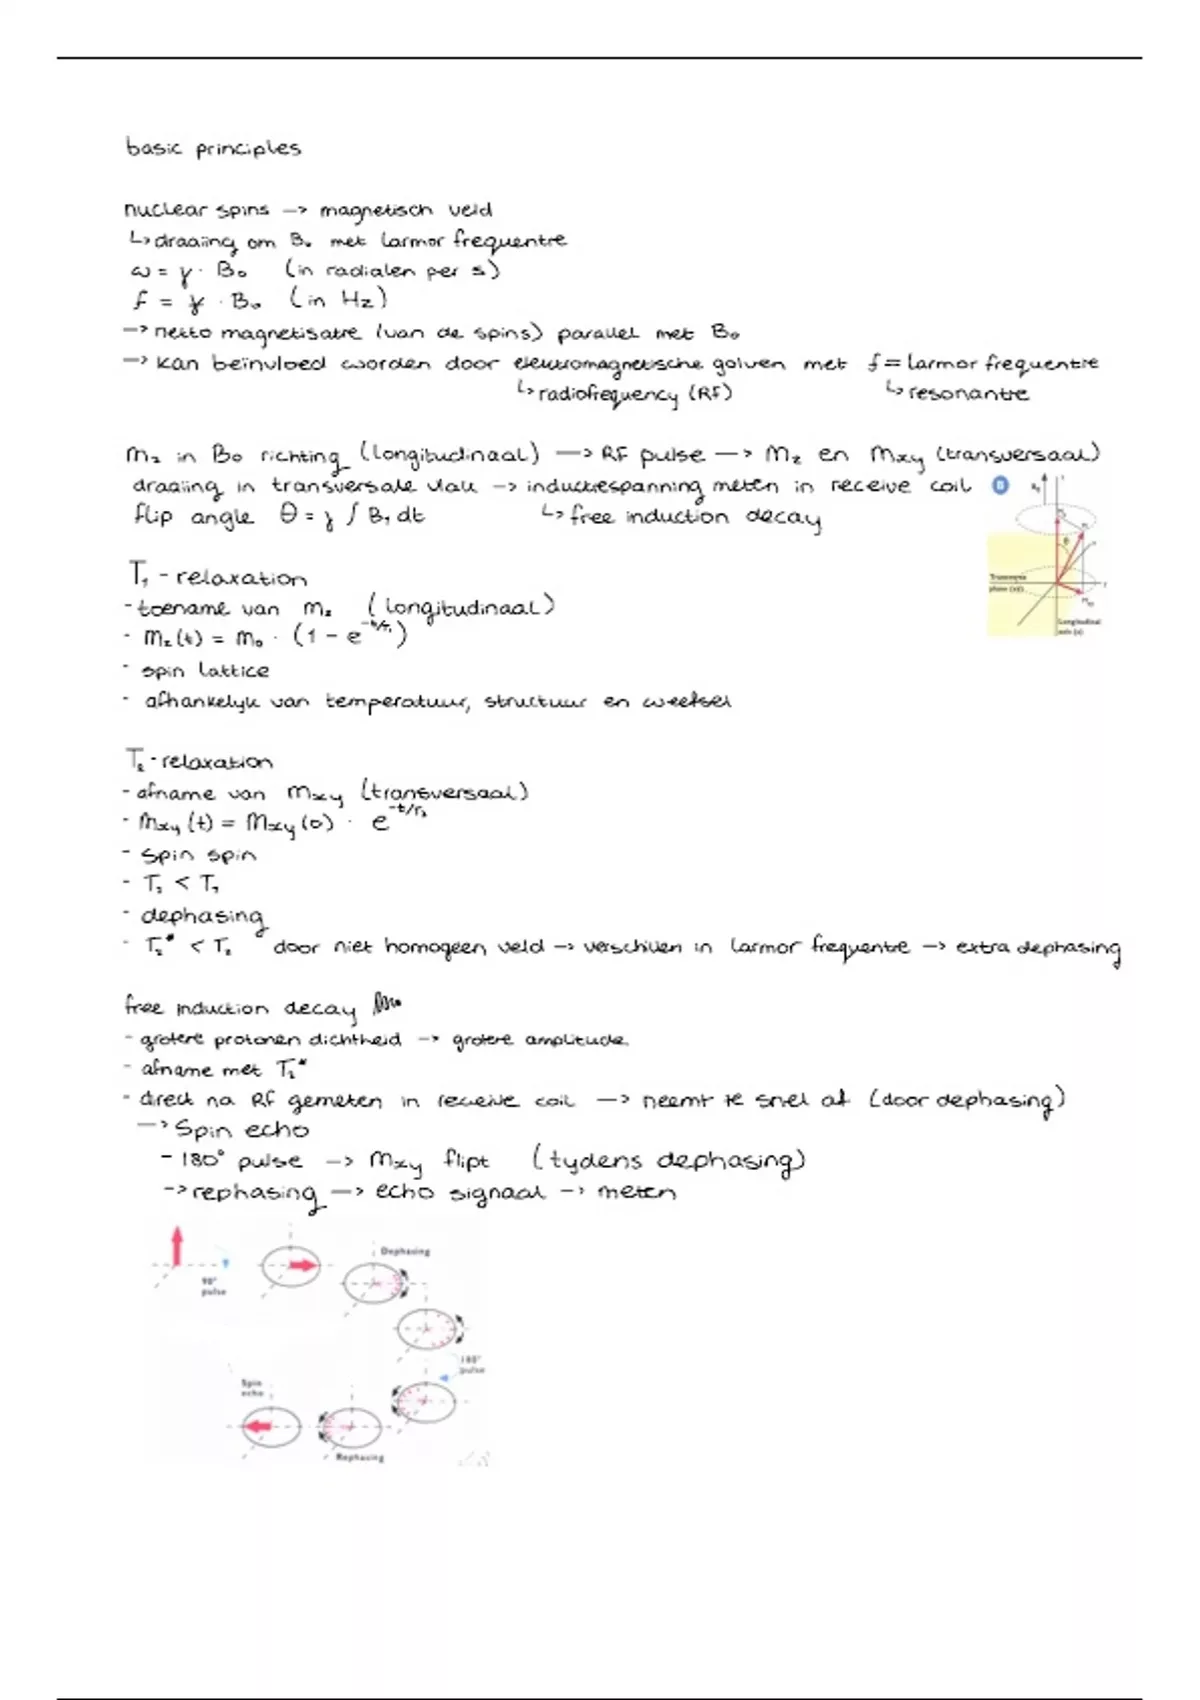 basic principles
nuclear spins -> magnetisch veld
↳ draaiing om B₀ met larmor frequentie
ω = γ · B₀ (in radialen per s)
f = ɣ · B₀ (in Hz)
-> netto magnetisatie (van de spins) parallel met B₀
-> kan beïnvloed worden door elektromagnetische golven met f = larmor frequentie
↳ radiofrequency (RF) ↳ resonantie
Mz in B₀ richting (longitudinaal) -> RF pulse -> Mz en Mxy (transversaal)
draaiing in transversale vlak -> inductiespanning meten in receive coil
flip angle θ = γ ∫ B₁ dt ↳ free induction decay
B
Transverse plane (xy)
Longitudinal axis (z)
T₁ - relaxation
- toename van Mz (longitudinaal)
- Mz(t) = M₀ · (1 - e^-t/T₁)
- spin lattice
- afhankelijk van temperatuur, structuur en weefsel
T₂ - relaxation
- afname van Mxy (transversaal)
- Mxy(t) = Mxy(0) · e^-t/T₂
- spin spin
- T₂ < T₁
- dephasing
- T₂* < T₂ door niet homogeen veld -> verschillen in larmor frequentie -> extra dephasing
free induction decay
- grotere protonen dichtheid -> grotere amplitude
- afname met T₂*
- direct na RF gemeten in receive coil -> neemt te snel af (door dephasing)
-> Spin echo
- 180° pulse -> Mxy flipt (tijdens dephasing)
-> rephasing -> echo signaal -> meten
Dephasing
90° pulse
180° pulse
Spin echo
Rephasing